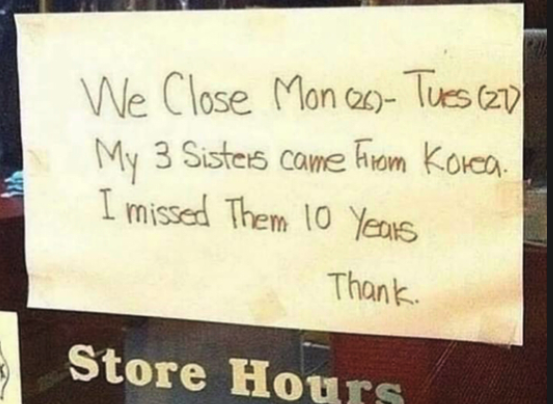 We Close Mon (26)- Tues (27)
My 3 Sisters came From Korea.
I missed Them 10 Years
Thank.
Store Hours